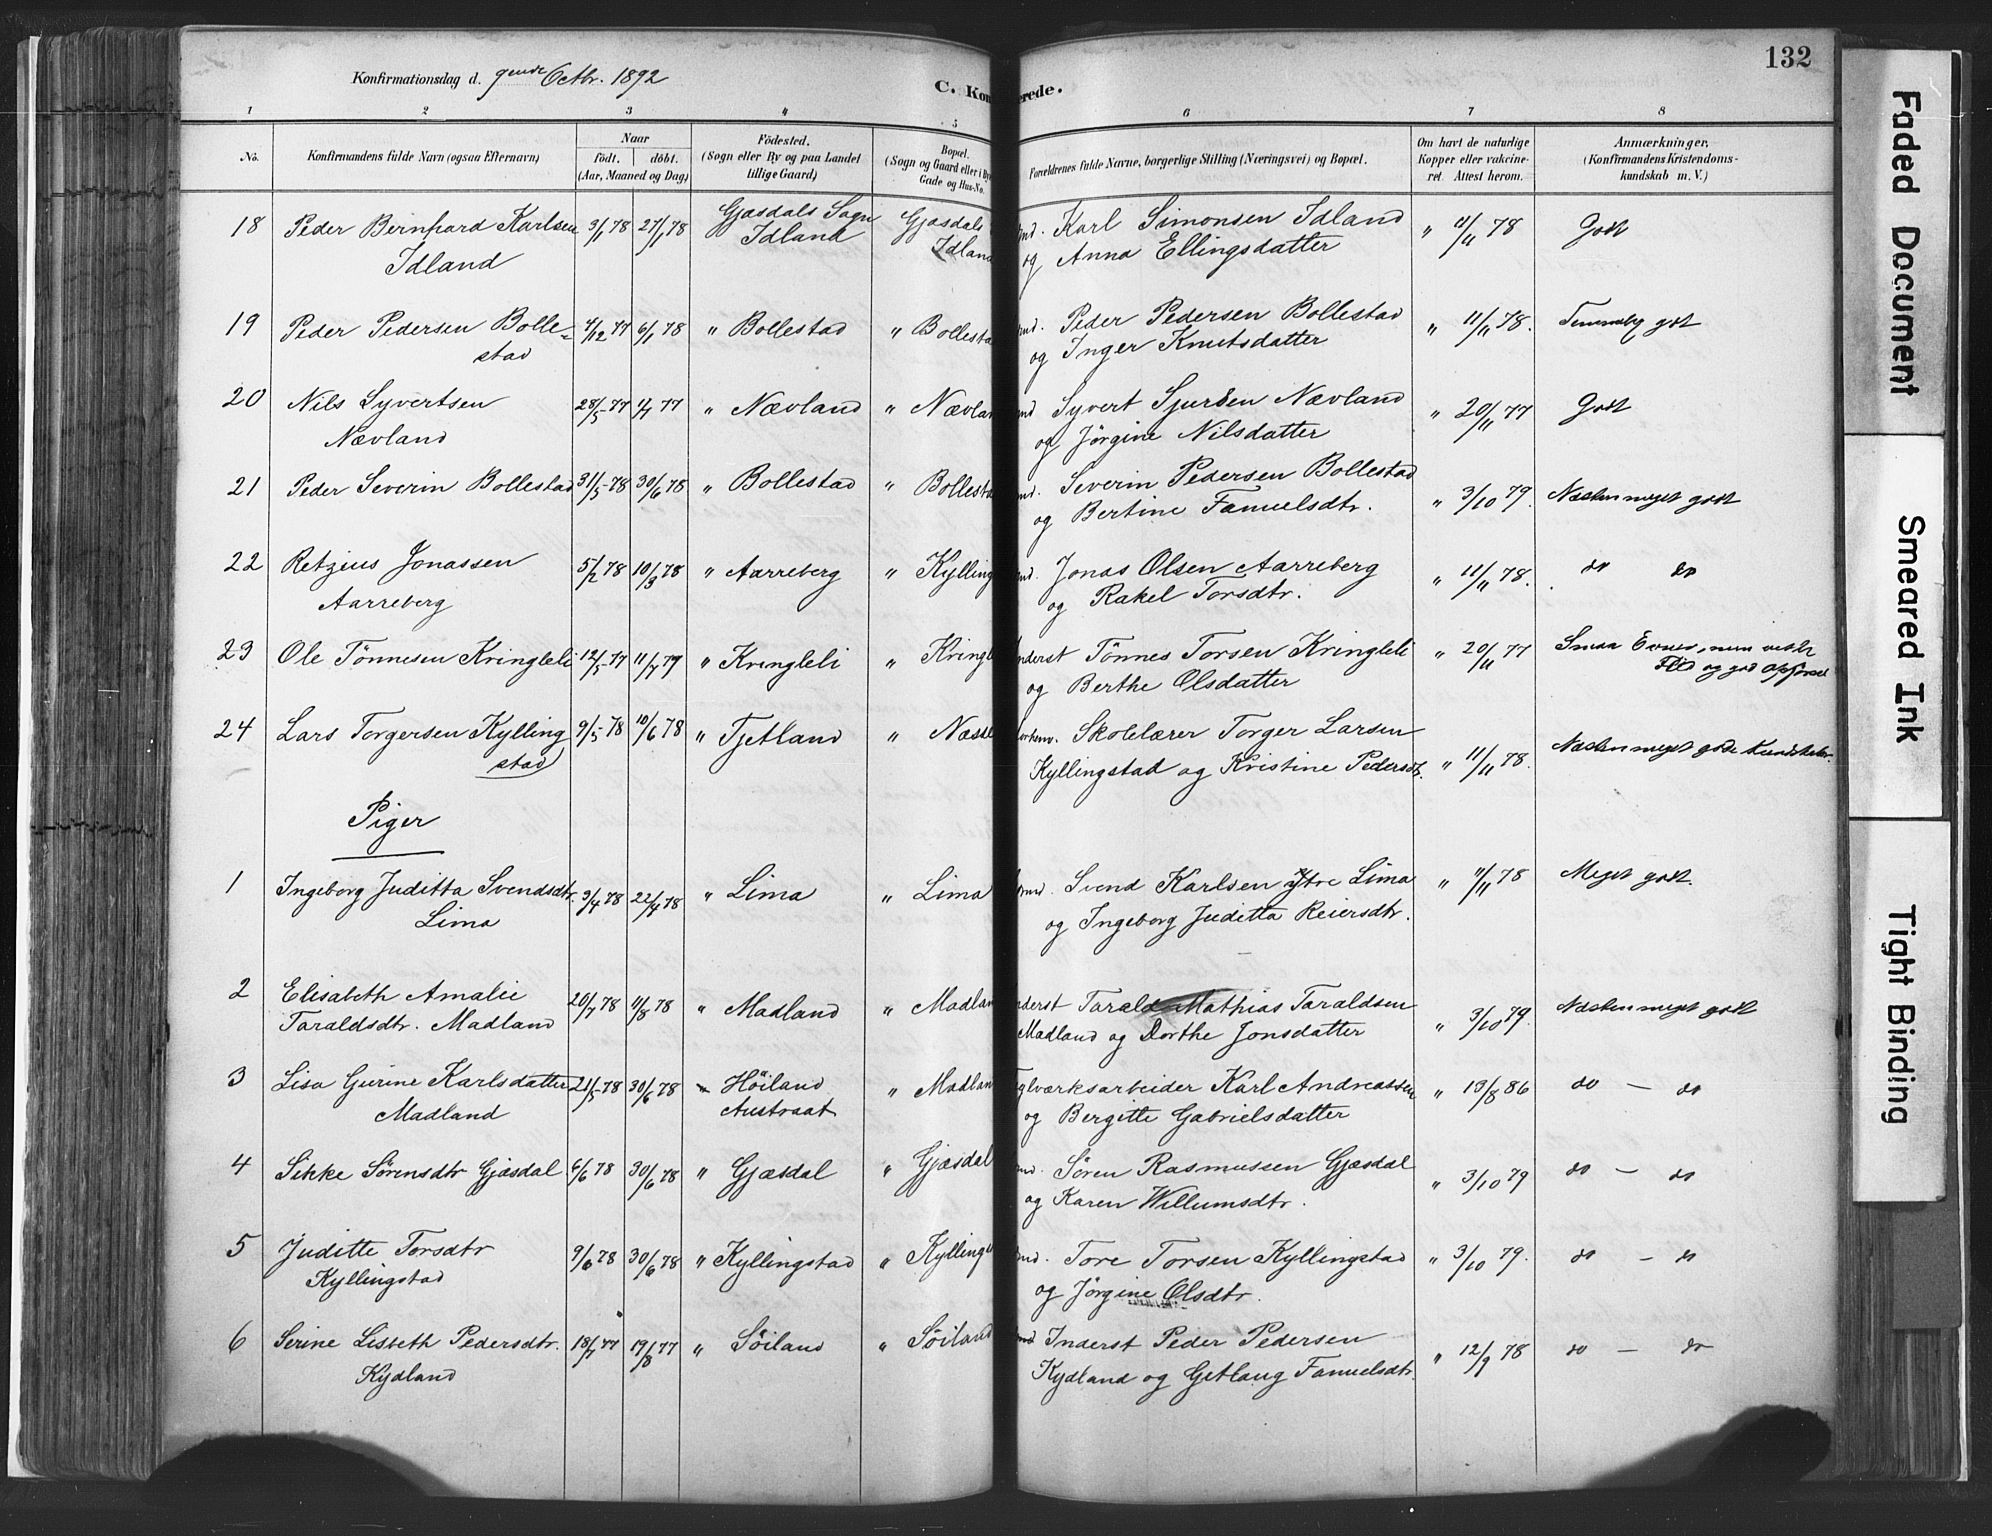 132
Konfirmationsdag d. 9ende Octbr. 1892
C. Kon erede.
1 2 3 4 5 6 7 8
No. Konfirmandens fulde Navn (ogsaa Efternavn) Naar födt. döbt. (Aar, Maaned og Dag) Födested. (Sogn eller By og paa Landet tillige Gaard) Bopæl. (Sogn og Gaard eller i By Gade og Hus-No. Forældrenes fulde Navne, borgerlige Stilling (Næringsvei) og Bopæl. Om havt de naturlige Kopper eller vakcineret. Attest herom. Anmærkninger, (Konfirmandens Kristendomskundskab m. V.)
18 Peder Bernhard Karlsen 3/1 78 27/1 78 Gjæsdals Sogn Gjæsdals Karl Simonsen Idland " 11/11 78 Godt
Idland Idland Idland og Anna Ellingsdatter
19 Peder Pedersen Bolle= 4/12 77 6/1 78 " Bollestad " Bollesta Peder Pedersen Bollestad " 11/11 78. Temmelig godt
stad og Inger Knutsdatter
20 Nils Syvertsen 28/5 77 1/7 77 " Nævland " Nævlan Syvert Sjursen Nævland " 20/11 77 Godt
Nævland og Jörgine Nilsdatter
21 Peder Severin Bollestad 31/5 78 30/6 78 " Bollestad " Bollesta Severin Pedersen Bollestad " 3/10 79. Næsten meget godt
og Bertine Famuelsdtr.
22 Retzius Jonassen 5/2 78 10/3 78 " Aarreberg " Kylling Jonas Olsen Aarreberg " 11/11 78. do do
Aarreberg og Rakel Torsdtr.
23 Ole Tönnesen Kringleli 12/5 77 11/7 79 " Kringleli " Kringl nderst Tönnes Torsen Kringleli " 20/11 77 Smaa Evner, men
og Berthe Olsdatter Flid og god Opförsel
24 Lars Torgersen Kylling 9/5 78 10/6 78 " Tjetland " Næsse Skolelærer Torger Larsen
stad Kyllingstad og Kristine Pedersdtr. " 11/11 78. Næsten meget gode Kundskaber.
Piger
1 Ingeborg Juditta Svendsdtr. 3/4 78 22/4 78 " Lima " Lima Svend Karlsen Ytre Lima " 11/11 78 Meget godt.
Lima og Ingeborg Juditta Reiersdtr.
2 Elisabeth Amalie 20/7 78 11/8 78 " Madland " Madlan nderst Tarald Mathias Taraldsen " 3/10 79. Næsten meget godt
Taraldsdtr. Madland Madland og Dorthe Jonsdatter
3 Lisa Gurine Karlsdatter 21/5 78 30/6 78 " Höiland " Madlan glværksarbeider Karl Andreassen " 13/8 86 do — do
Madland Austraat og Bergitte Gabrielsdatter
4 Sikke Sörensdtr Gjæsdal 6/6 78 30/6 78 " Gjæsdal " Gjæsdal Sören Rasmussen Gjæsdal " 3/10 79 do — do
og Karen Willumsdtr.
5 Juditte Torsdtr 9/6 78 30/6 78 " Kyllingstad " Kyllings Tore Torsen Kyllingstad " 3/10 79. do — do
Kyllingstad og Jörgine Olsdtr.
6 Serine Lisbeth Pedersdtr. 18/7 77 19/8 77 " Söiland " Söiland Inderst Peder Pedersen " 12/9 78 do — do
Kydland Kydland og Getlaug Famuelsdtr.
Faded Document
Smeared Ink
Tight Binding